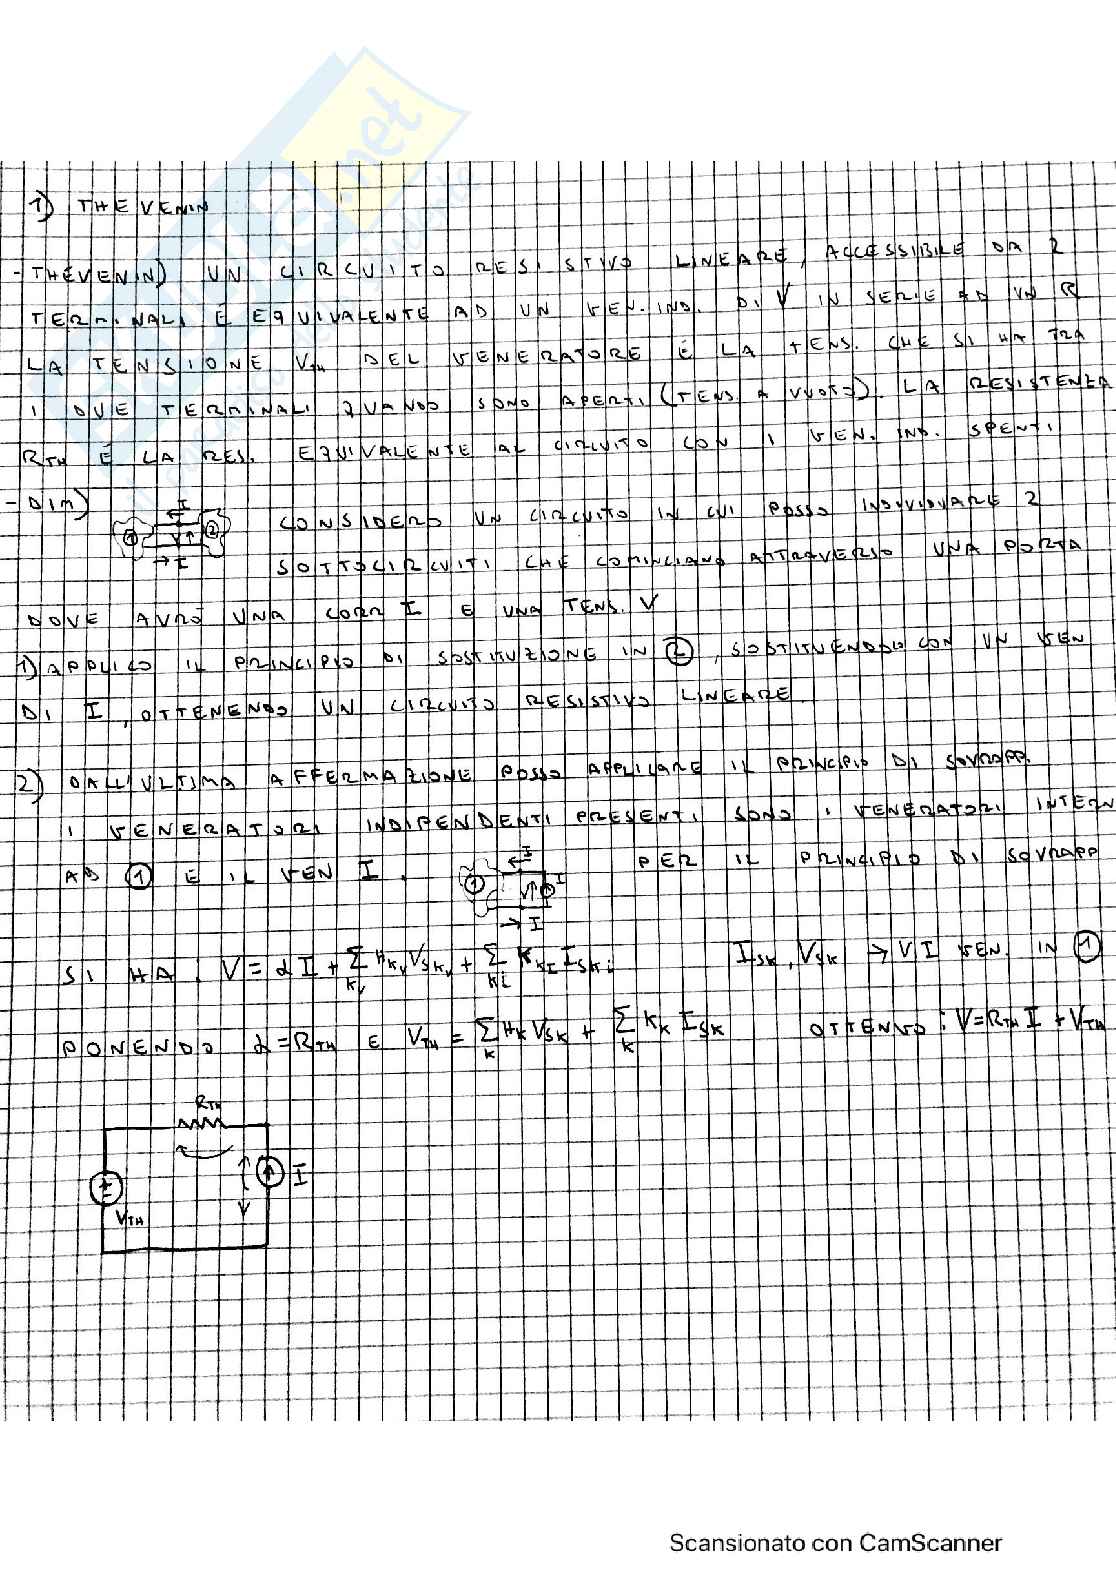 1) THEVENIN
- THÉVENIN) UN CIRCUITO RESISTIVO LINEARE, ACCESSIBILE DA 2
TERMINALI É EQUIVALENTE AD UN GEN. IND. DI V IN SERIE AD UN R
LA TENSIONE VTH DEL GENERATORE É LA TENS. CHE SI HA TRA
I DUE TERMINALI QUANDO SONO APERTI (TENS. A VUOTO). LA RESISTENZA
RTH É LA RES. EQUIVALENTE AL CIRCUITO CON I GEN. IND. SPENTI
- DIM)
I
1 2
V
I
CONSIDERO UN CIRCUITO IN CUI POSSO INDIVIDUARE 2
SOTTOCIRCUITI CHE COMINCIANO ATTRAVERSO UNA PORTA
DOVE AVRÒ UNA CORR I E UNA TENS. V
1) APPLICO IL PRINCIPIO DI SOSTITUZIONE IN 2, SOSTITUENDOLO CON UN GEN
DI I, OTTENENDO UN CIRCUITO RESISTIVO LINEARE
2) DALL'ULTIMA AFFERMAZIONE POSSO APPLICARE IL PRINCIPIO DI SOVRAPP.
I GENERATORI INDIPENDENTI PRESENTI SONO I GENERATORI INTERN
AD 1 E IL GEN I.
I
1 V I
I
PER IL PRINCIPIO DI SOVRAPP
SI HA: V = αI + ∑kv Hkv Vskv + ∑ki KkI Iski ISK, VSK → V I GEN. IN 1
PONENDO α = RTH E VTH = ∑k Hk VSK + ∑k Kk ISK OTTENGO: V = RTH I + VTH
RTH
I
VTH
V
Scansionato con CamScanner